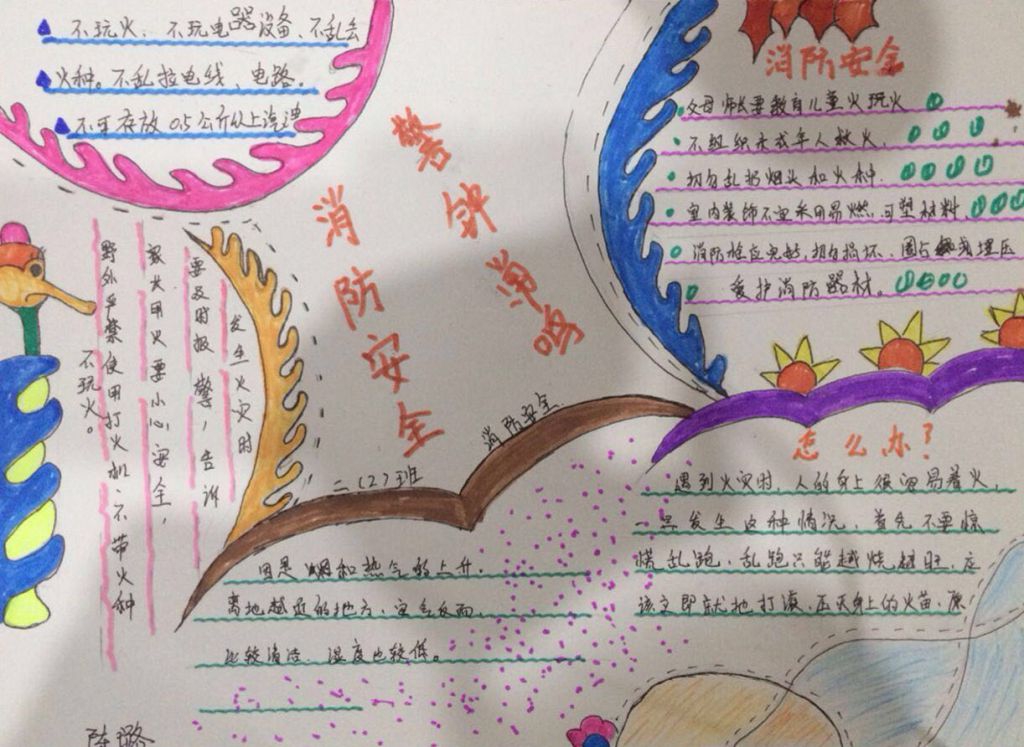 不玩火、不玩电器设备、不乱丢
火种。不乱拉电线、电路.
不可存放0.5公斤以上汽油
警钟常鸣
消防安全
消防安全
父母师长要教育儿童火玩火
不组织未成年人救火.
切勿乱扔烟头和火种.
室内装饰不宜采用易燃.可塑材料.
消防栓应完好,切勿损坏、圈占或埋压
爱护消防器材。
发生火灾时
要及时报警,告诉
家长用火要小心安全,
野外严禁使用打火机、不带火种
不玩火。
二(2)班
消防安全
因是烟和热气的上升.
离地越近的地方、空气反而.
比较清洁、温度也较低。
怎么办?
遇到火灾时,人的身上很容易着火,
一旦发生这种情况,首先不要惊
慌乱跑,乱跑只能越烧越旺,应
该立即就地打滚,压灭身上的火苗,
陈璐